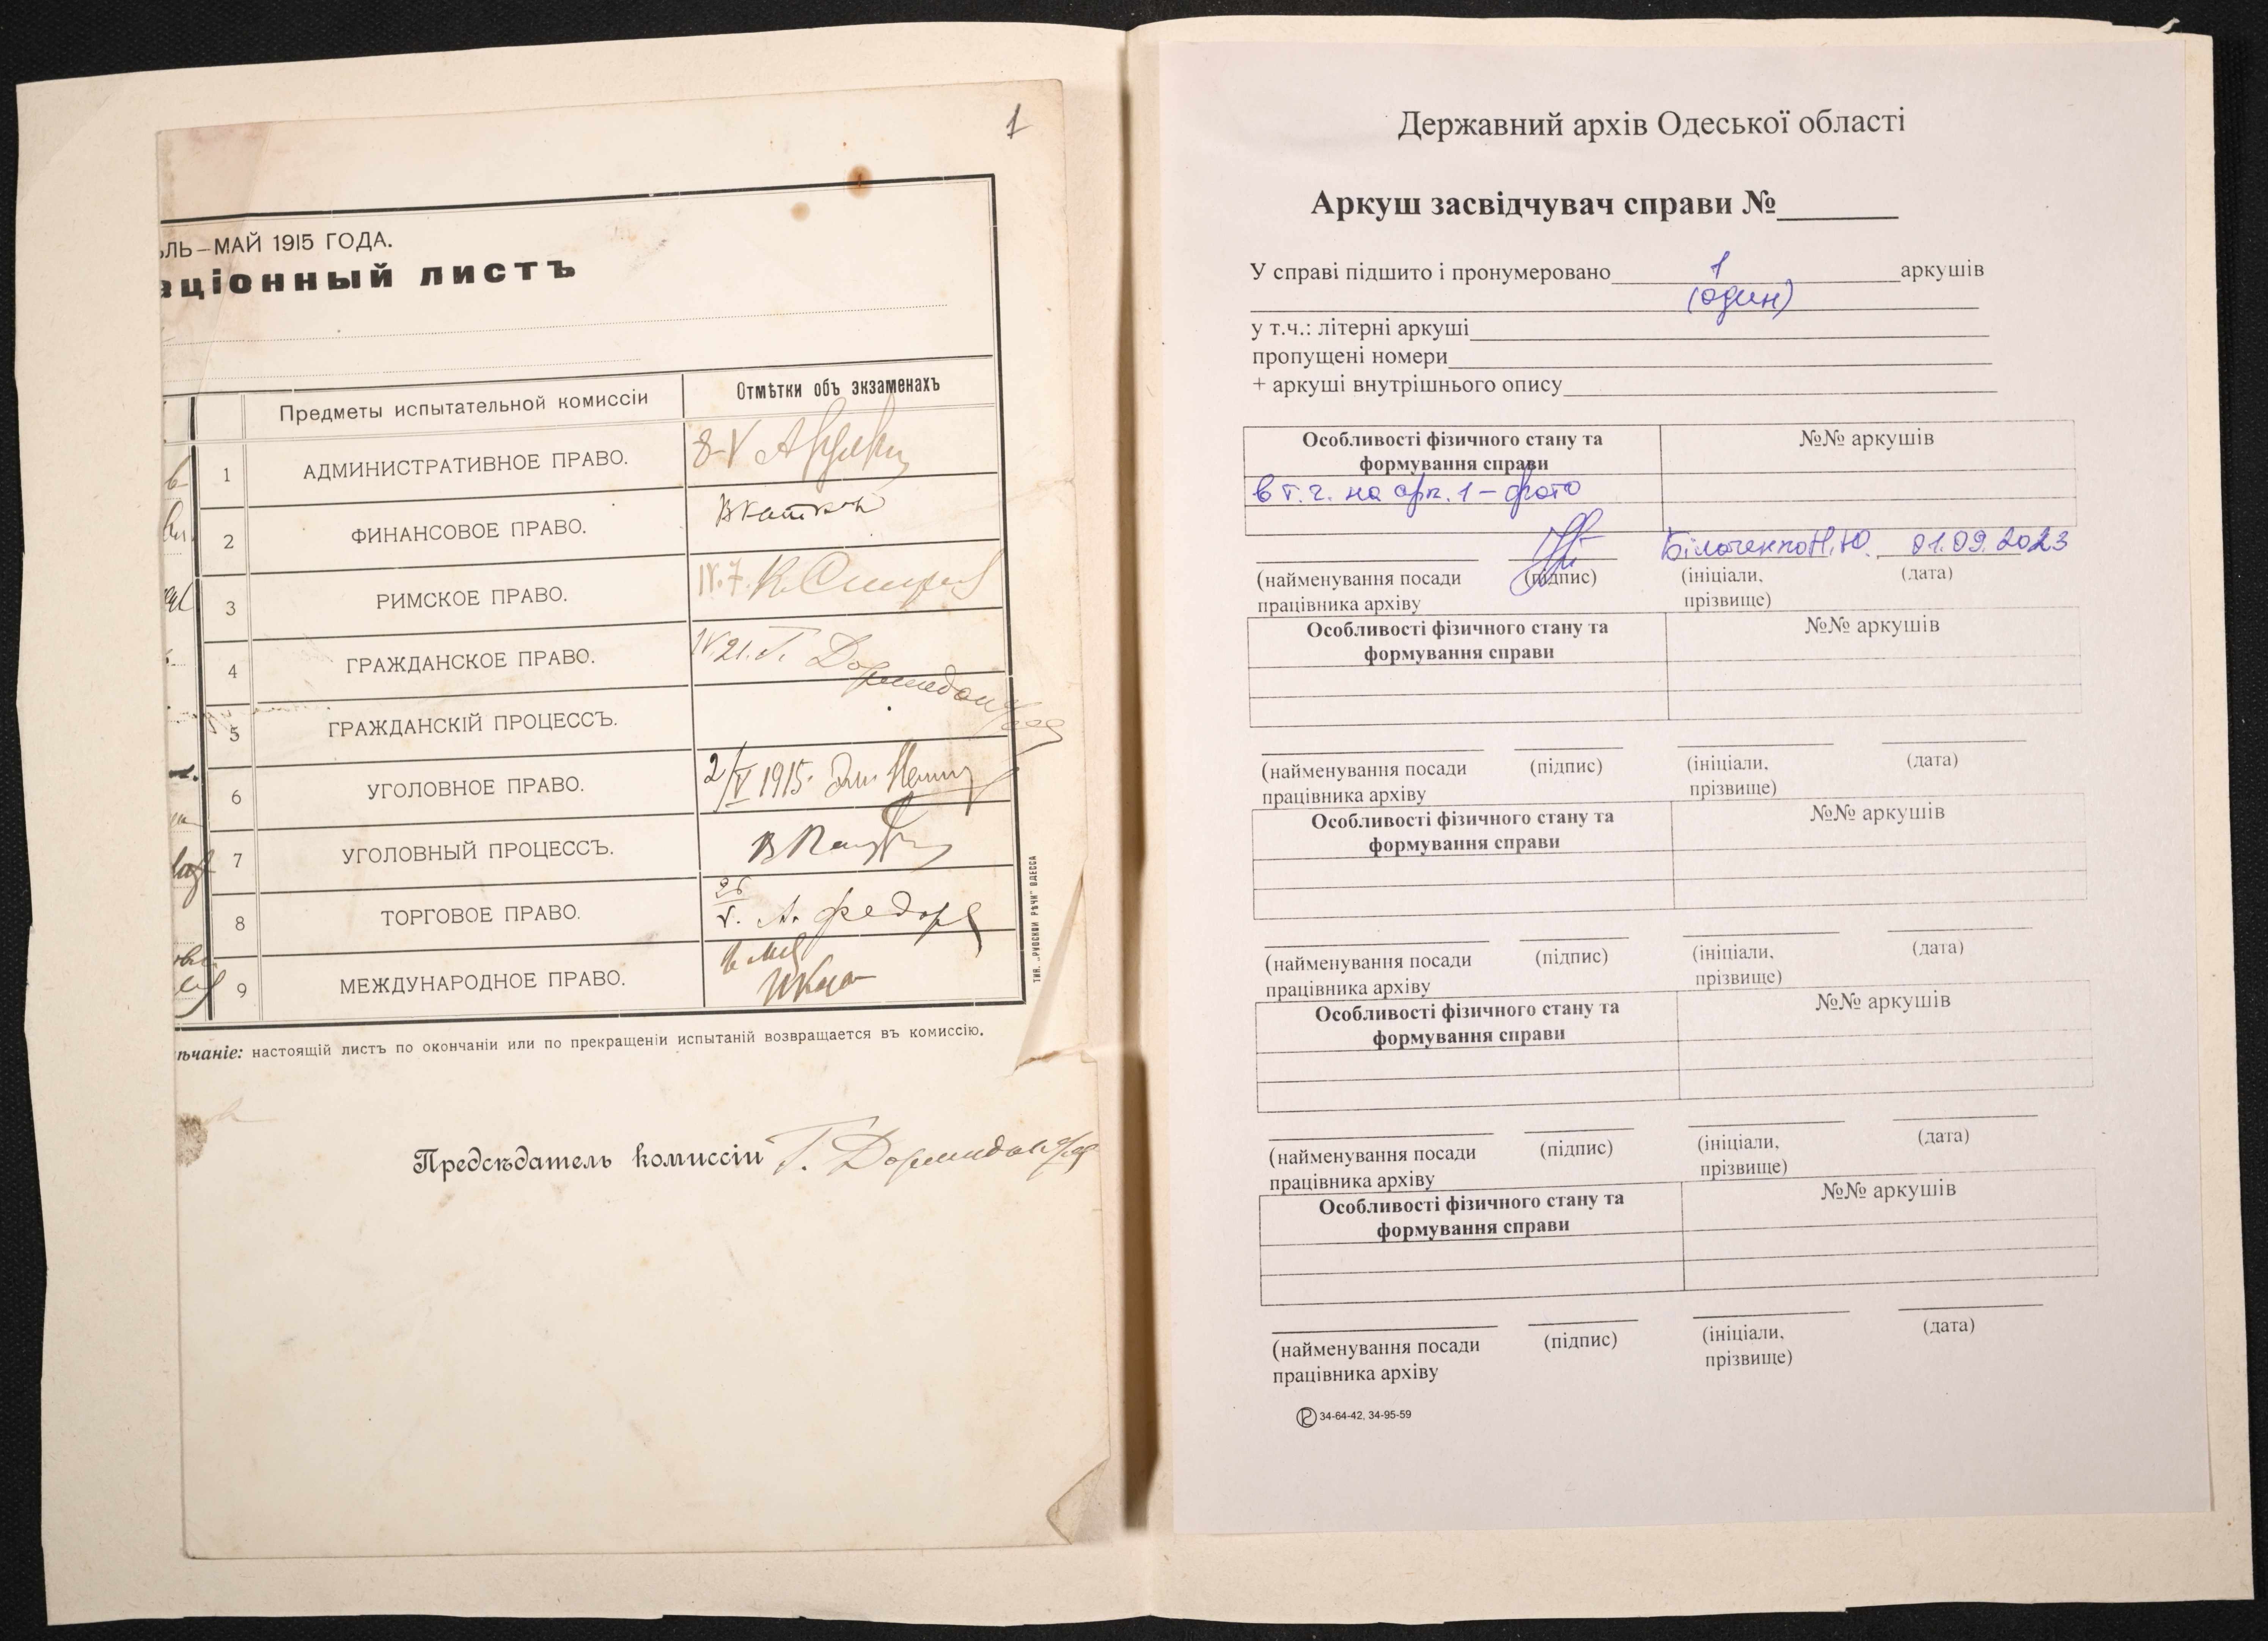 1
ѢЛЬ – МАЙ 1915 ГОДА.
аціонный листъ
Предметы испытательной комиссіи
Отмѣтки объ экзаменахъ
1 АДМИНИСТРАТИВНОЕ ПРАВО. 8 V
2 ФИНАНСОВОЕ ПРАВО.
3 РИМСКОЕ ПРАВО. IV. 7.
4 ГРАЖДАНСКОЕ ПРАВО. IV 21. Г. Дормидонтов
5 ГРАЖДАНСКІЙ ПРОЦЕССЪ.
6 УГОЛОВНОЕ ПРАВО. 2/V 1915.
7 УГОЛОВНЫЙ ПРОЦЕССЪ.
8 ТОРГОВОЕ ПРАВО. 26/V. А. Федоров
9 МЕЖДУНАРОДНОЕ ПРАВО.
ТИП. „РУССКОЙ РѢЧИ" ОДЕССА
ѣчаніе: настоящій листъ по окончаніи или по прекращеніи испытаній возвращается въ комиссію.
Предсѣдатель комиссіи Г. Дормидонтов
Державний архів Одеської області
Аркуш засвідчувач справи №
У справі підшито і пронумеровано 1 аркушів
(один)
у т.ч.: літерні аркуші
пропущені номери
+ аркуші внутрішнього опису
Особливості фізичного стану та
формування справи
№№ аркушів
в т.ч. на арк. 1 – фото
Білоченко Н.Ю. 01.09.2023
(найменування посади
працівника архіву
(підпис)
(ініціали,
прізвище)
(дата)
Особливості фізичного стану та
формування справи
№№ аркушів
(найменування посади
працівника архіву
(підпис)
(ініціали,
прізвище)
(дата)
Особливості фізичного стану та
формування справи
№№ аркушів
(найменування посади
працівника архіву
(підпис)
(ініціали,
прізвище)
(дата)
Особливості фізичного стану та
формування справи
№№ аркушів
(найменування посади
працівника архіву
(підпис)
(ініціали,
прізвище)
(дата)
Особливості фізичного стану та
формування справи
№№ аркушів
(найменування посади
працівника архіву
(підпис)
(ініціали,
прізвище)
(дата)
34-64-42, 34-95-59